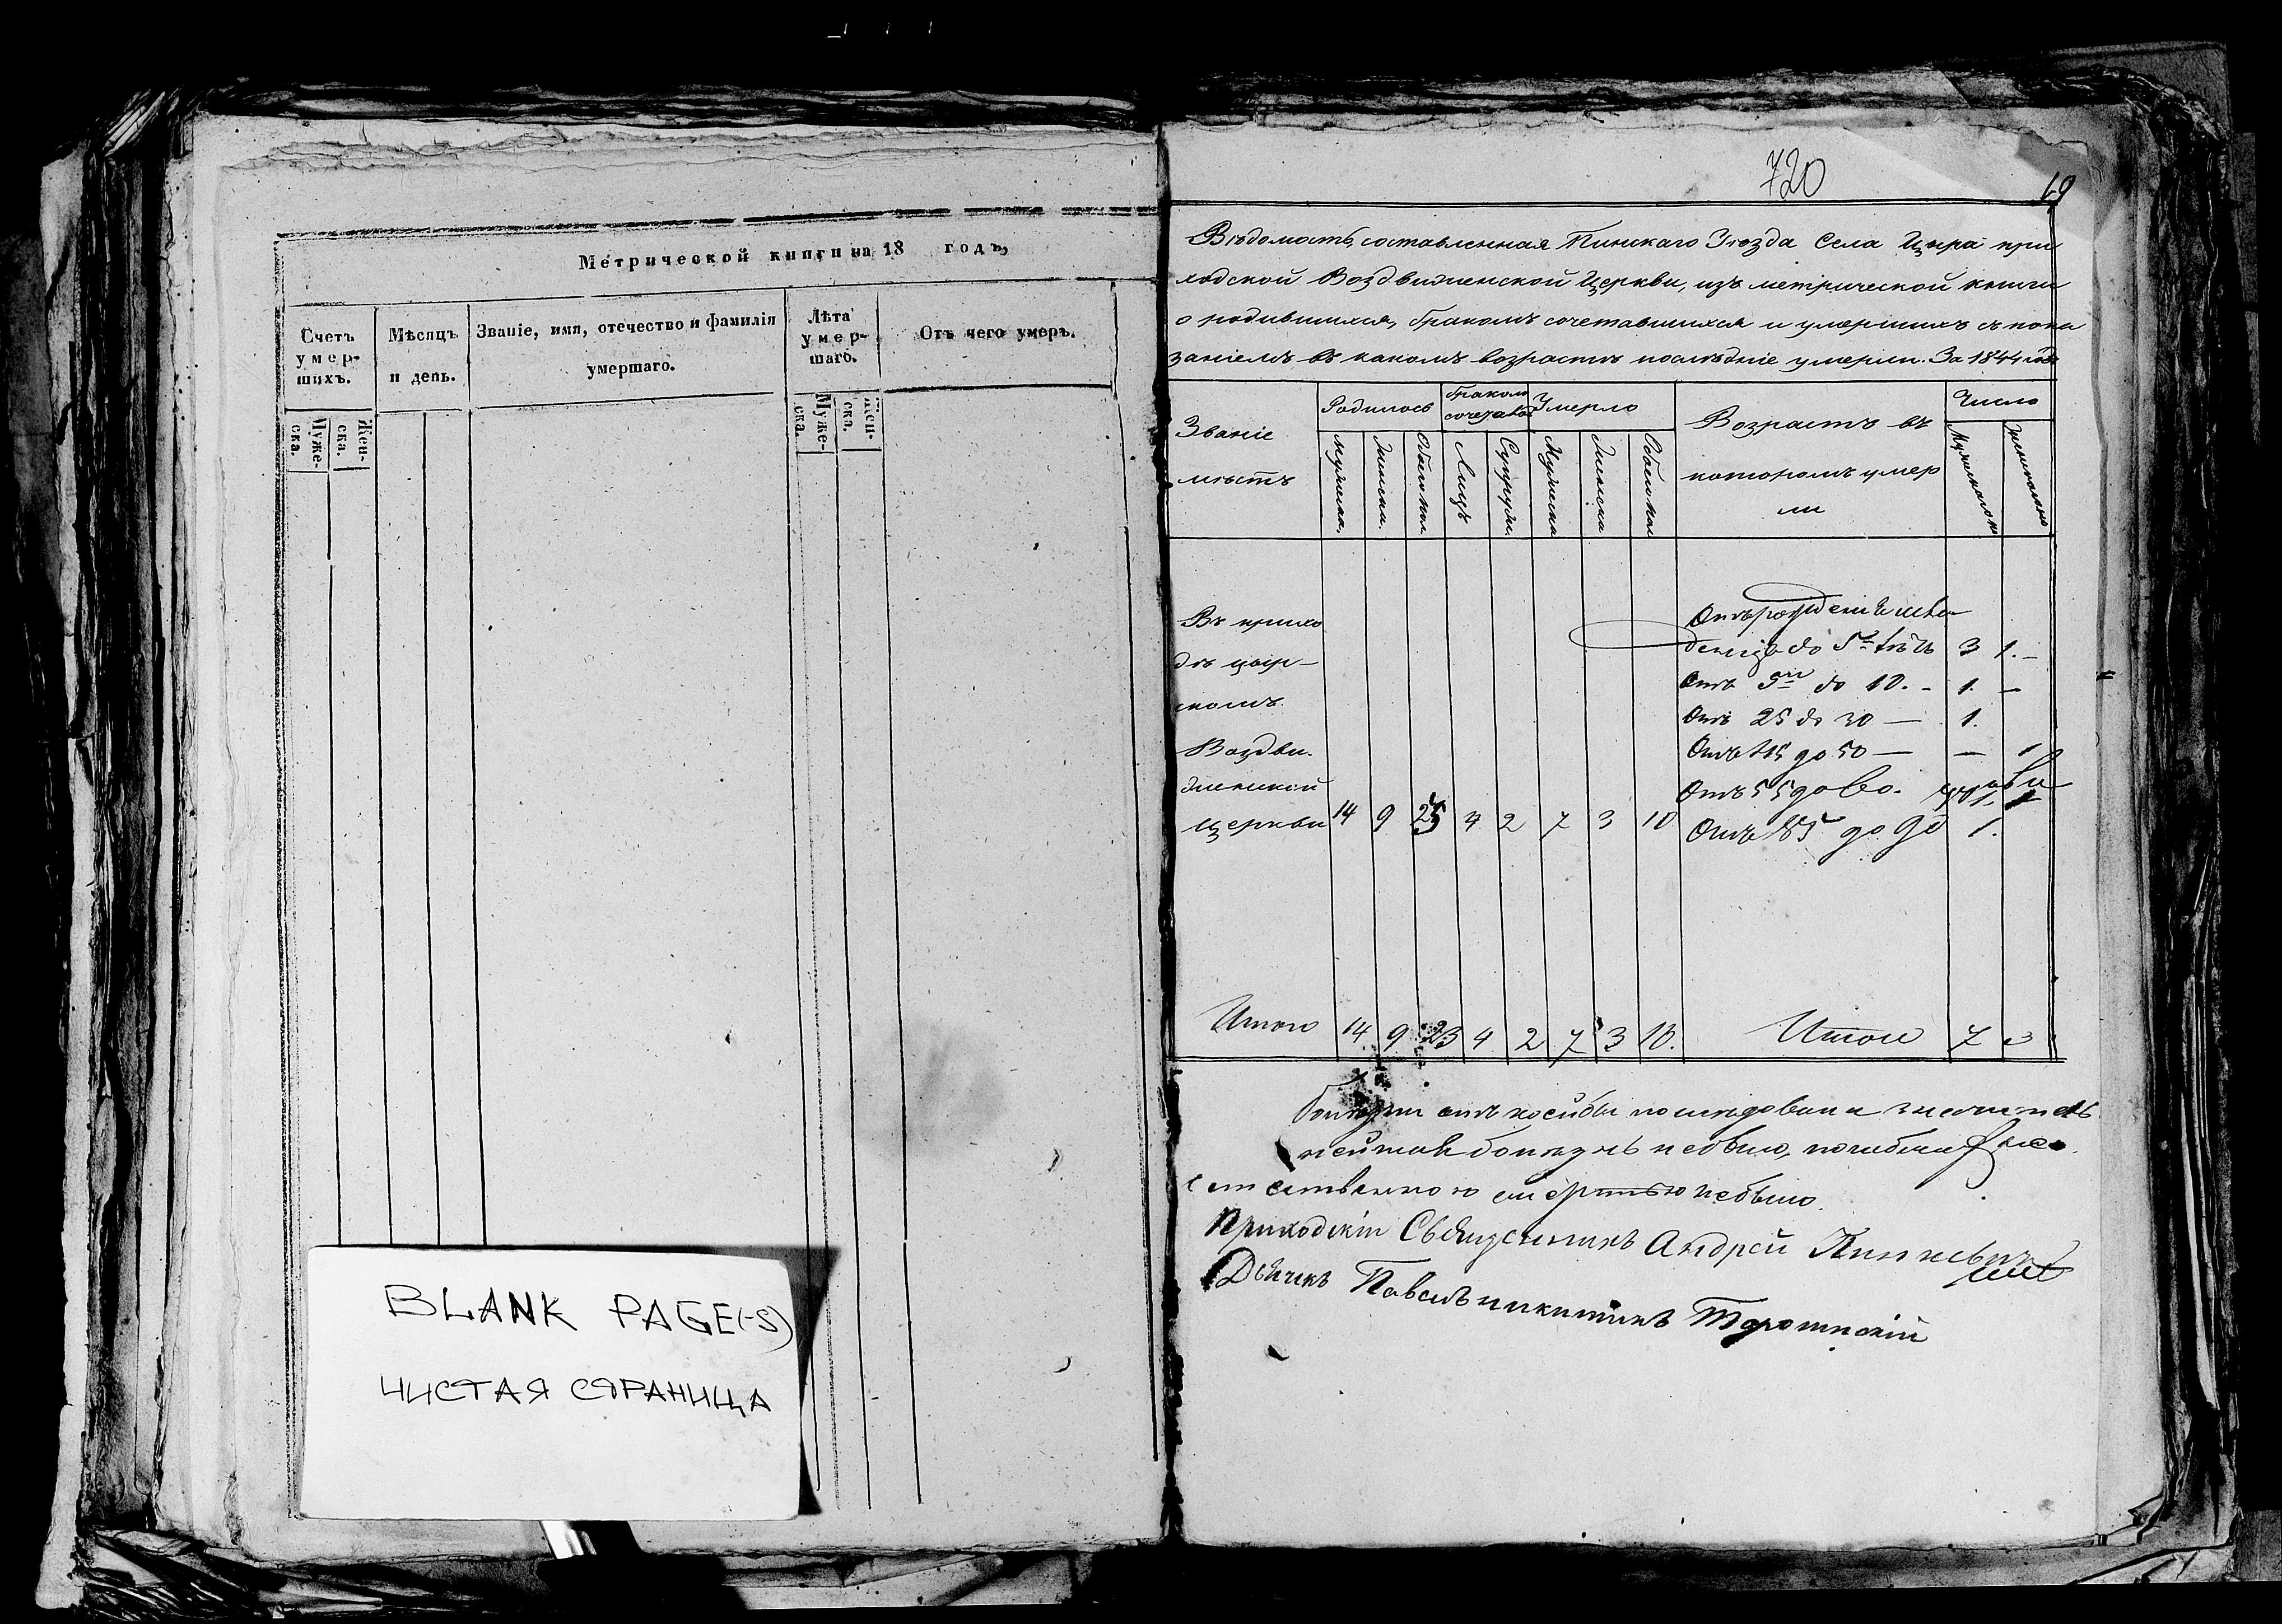 Метрической книги на 18 годъ,
Счетъ умер-шихъ.
Мѣсяцъ и день.
Званіе, имя, отечество и фамилія умершаго.
Лѣта умер-шаго.
Отъ чего умеръ.
Муже-ска.
Жен-ска.
Муже-ска.
Жен-ска.
BLANK PAGE(-S)
ЧИСТАЯ СТРАНИЦА
720
Вѣдомость, составленная Пинскаго Уѣзда Села Цыра при
ходской Воздвиженской Церкви, изъ метрической книги
о родившихся, бракомъ сочетавшихся и умершихъ съ пока
заніемъ въ какомъ возрастѣ послѣдніе умерли. За 1844 годъ
Званіе мѣстъ
Родилось
Бракомъ сочетано
Умерло
Возрастъ въ которомъ умер ли
Число
Мужеска
Женска
Обоего пол
Лицъ
Супруж
Мужеска
Женска
Обоего пол
Въ прихо
дѣ цыр-
скомъ
Воздви-
женской
Церкви 14 9 23 4 2 7 3 10
Отъ рожденія мла
денца до 5 лѣтъ 3 1. -
Отъ 5 до 10. - 1. -
Отъ 25 до 30 — 1.
Отъ 45 до 50 — — 1
Отъ 55 до 60. 1. 1
Отъ 85 до 90 1.
Итого 14 9 23 4 2 7 3 10. Итого 7 3
болѣзнь небыло, погибшихъ не
естественною смертью небыло.
Приходскій Священникъ Андрей
Дьячекъ Павелъ Никитинъ